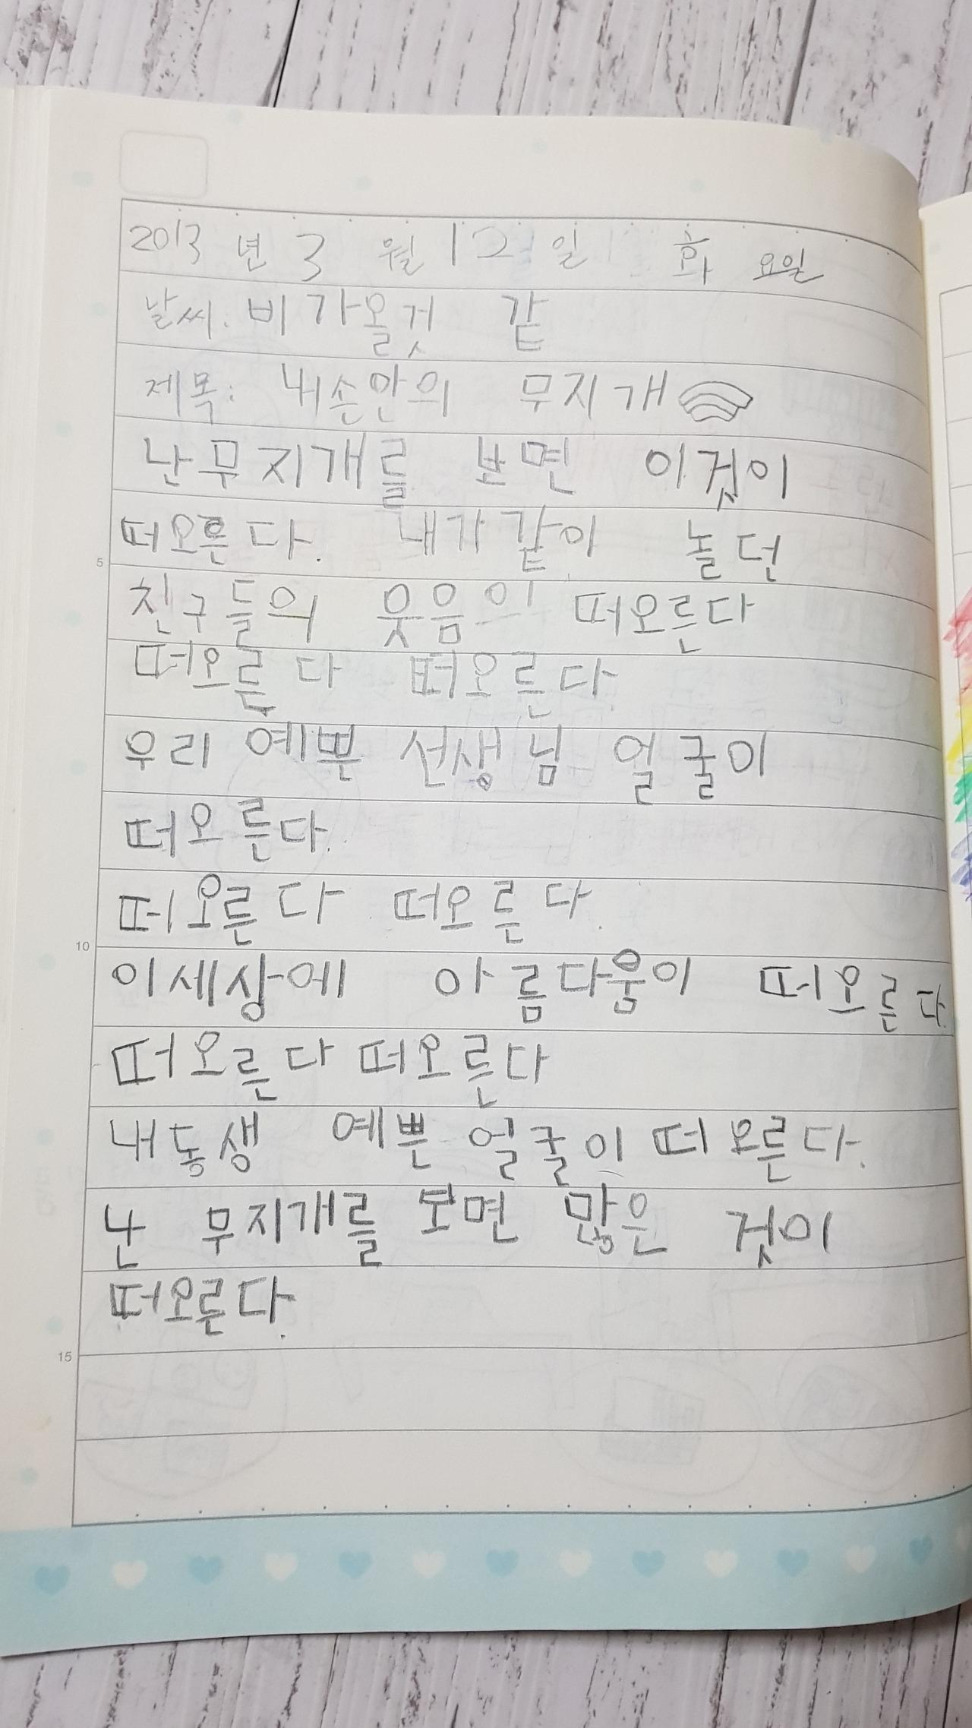 2013 년 3 월 12 일 화 요일
날씨: 비가올것 같
제목: 내손안의 무지개
난무지개를 보면 이것이
떠오른다. 내가같이 놀던
5
친구들의 웃음의 떠오른다
떠오른다 떠오른다.
우리 예쁜 선생님 얼굴이
떠오른다.
떠오른다 떠오른다.
10
이세상에 아름다움이 떠오른다.
떠오른다 떠오른다
내동생 예쁜 얼굴이 떠오른다.
난 무지개를 보면 많은 것이
떠오른다.
15